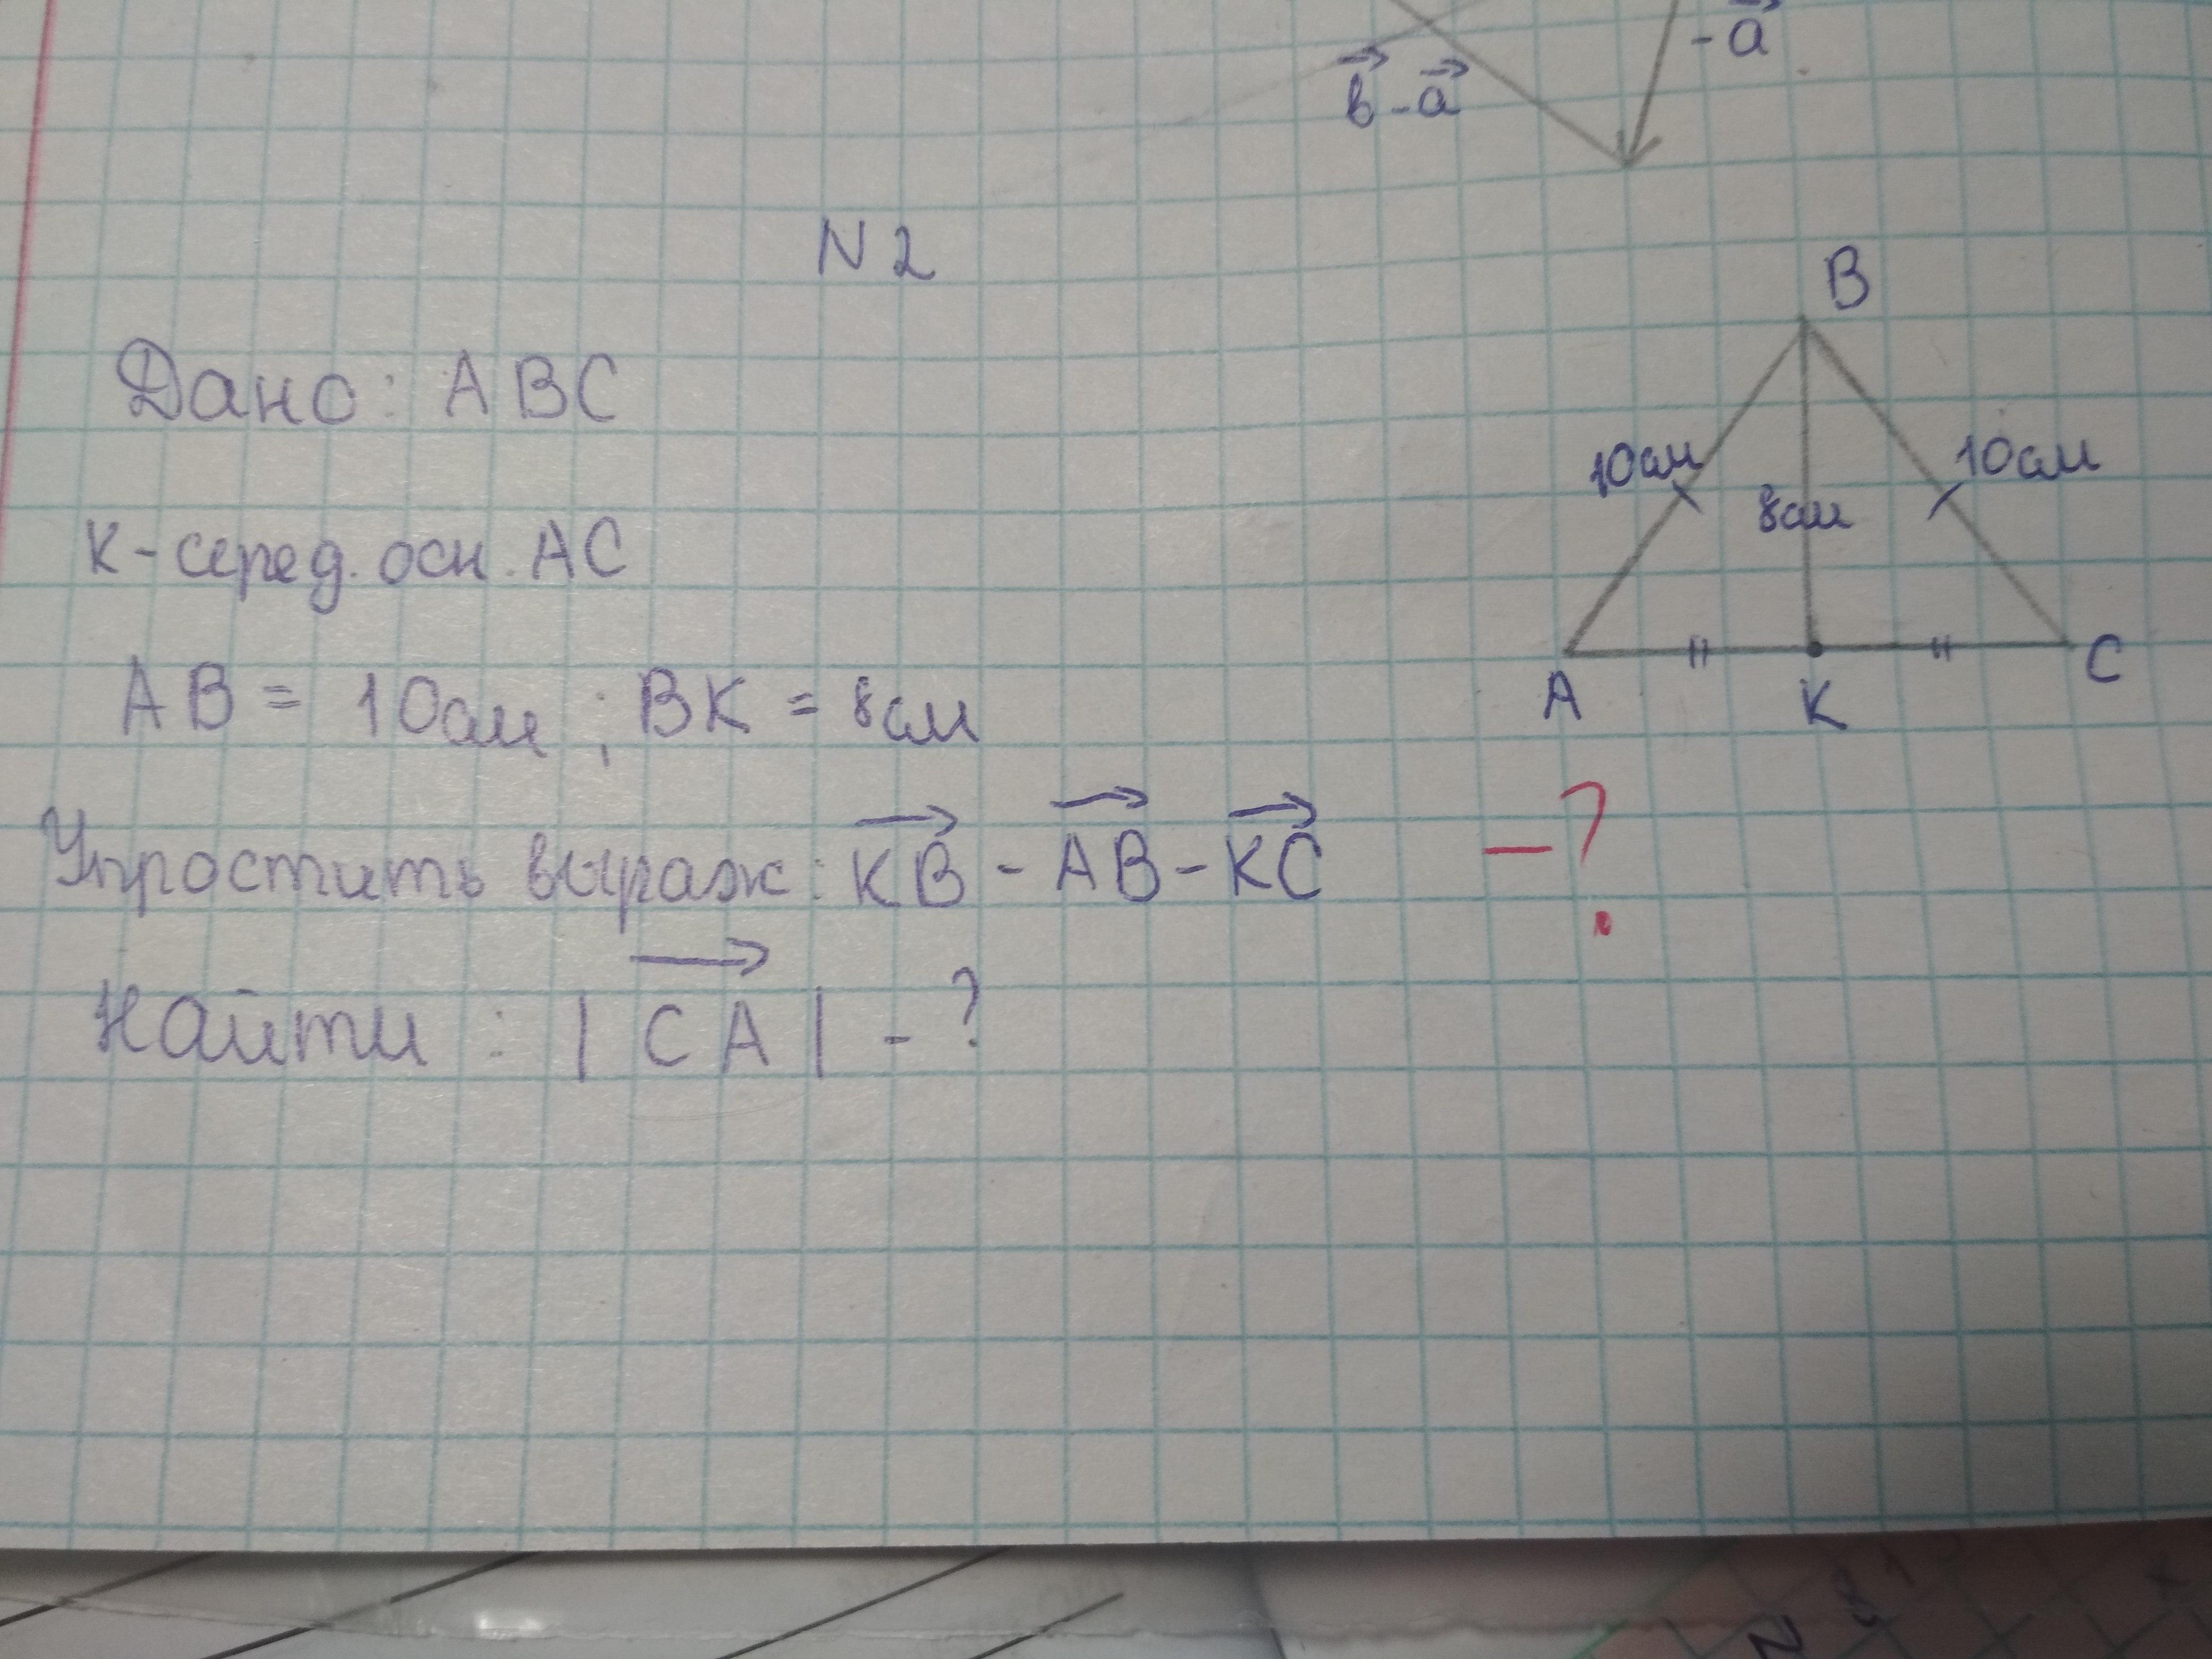 b - a
- a
N 2
Дано: ABC
K - серед. осн. AC
AB = 10 см ; BK = 8 см
Упростить выраж: KB - AB - KC - ?
Найти : | CA | - ?
B
10 см
8 см
10 см
A
K
C